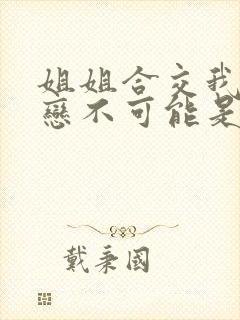 姐姐合交我
戀不可能是
戴秉國